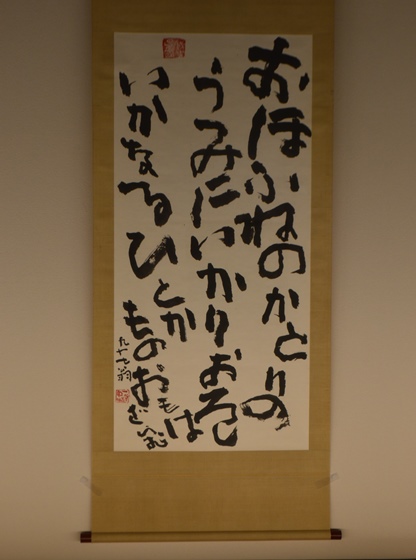 おほふねのかとりの
うみにいかりおろし
いかなるひとか
ものおもは
ざらむ
九十七翁